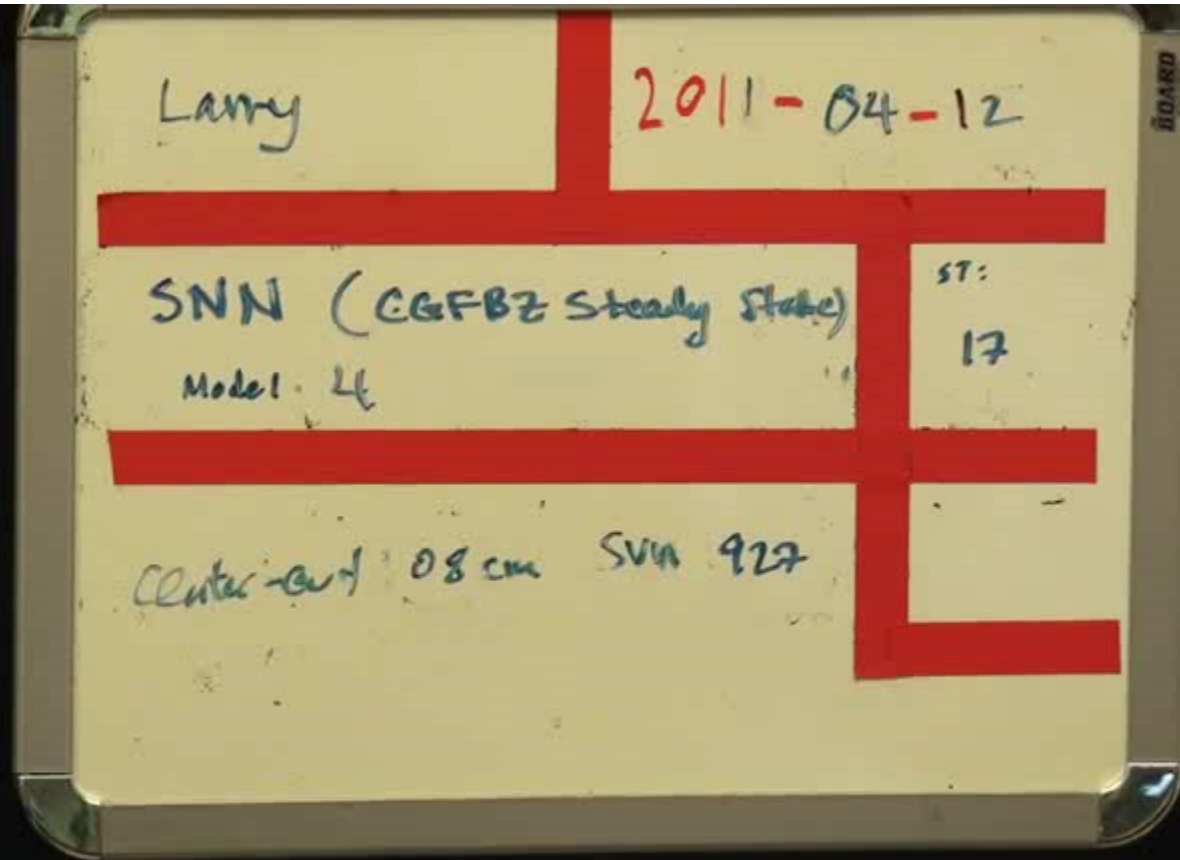 Larry
2011-04-12
SNN (CGFBZ Steady State)
Model 4
ST:
17
Center-out 08 cm SVM 927
BOARD